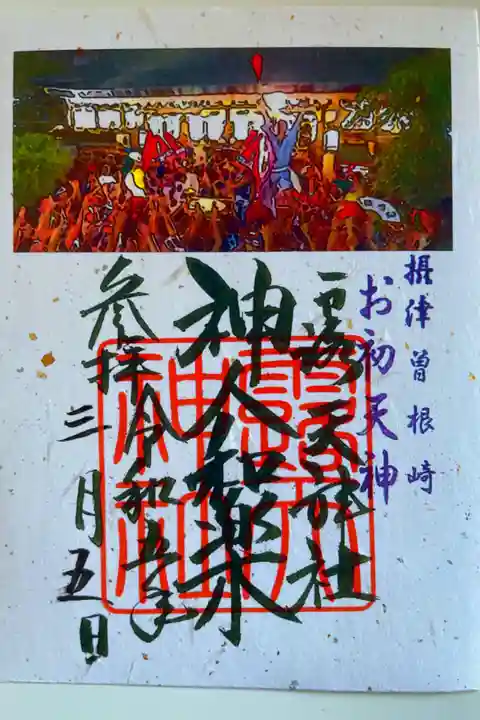 摂津 曽根崎
お初天神
露天神社
神人和楽
参拝 令和五年
三月五日